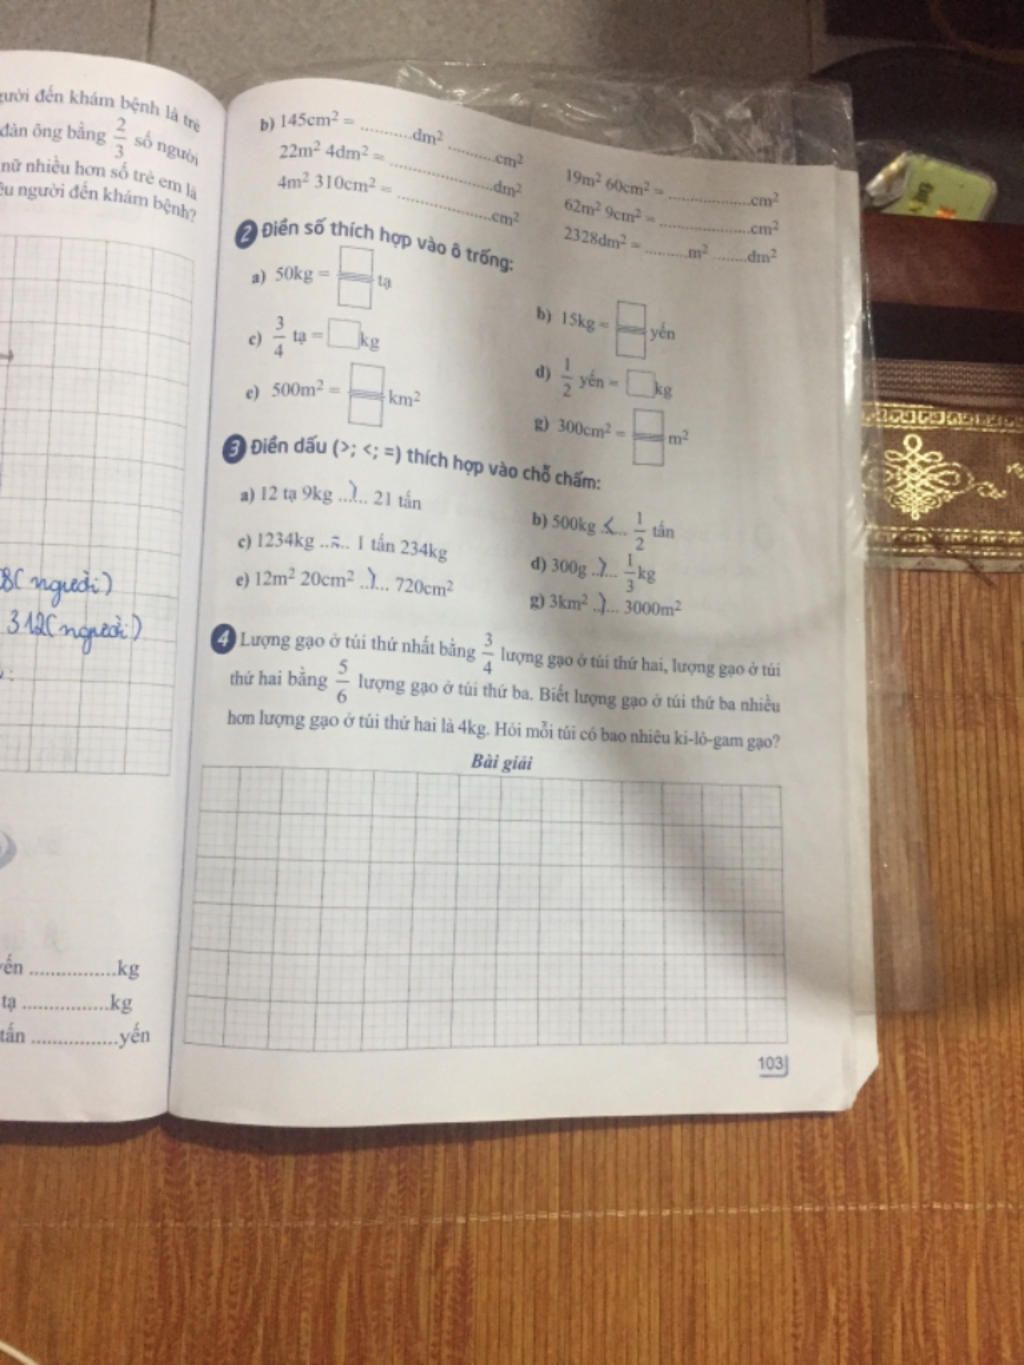 gười đến khám bệnh là trẻ
đàn ông bằng 2/3 số người
nữ nhiều hơn số trẻ em là
êu người đến khám bệnh?
8 (người)
312 (người)
yến ................kg
tạ ................kg
tấn ................yến
b) 145cm² = ..........dm² .........cm²
22m² 4dm² = ....................dm²
4m² 310cm² = ..................cm²
19m² 60cm² = ................cm²
62m² 9cm² = ..................cm²
2328dm² = .........m² .......dm²
2 Điền số thích hợp vào ô trống:
a) 50kg = □/□ tạ
b) 15kg = □/□ yến
c) 3/4 tạ = □ kg
d) 1/2 yến = □ kg
e) 500m² = □/□ km²
g) 300cm² = □/□ m²
3 Điền dấu (>; <; =) thích hợp vào chỗ chấm:
a) 12 tạ 9kg ...>... 21 tấn
b) 500kg .<... 1/2 tấn
c) 1234kg ..=.. 1 tấn 234kg
d) 300g ..>... 1/3 kg
e) 12m² 20cm² ..>... 720cm²
g) 3km² ..>... 3000m²
4 Lượng gạo ở túi thứ nhất bằng 3/4 lượng gạo ở túi thứ hai, lượng gạo ở túi
thứ hai bằng 5/6 lượng gạo ở túi thứ ba. Biết lượng gạo ở túi thứ ba nhiều
hơn lượng gạo ở túi thứ hai là 4kg. Hỏi mỗi túi có bao nhiêu ki-lô-gam gạo?
Bài giải
103